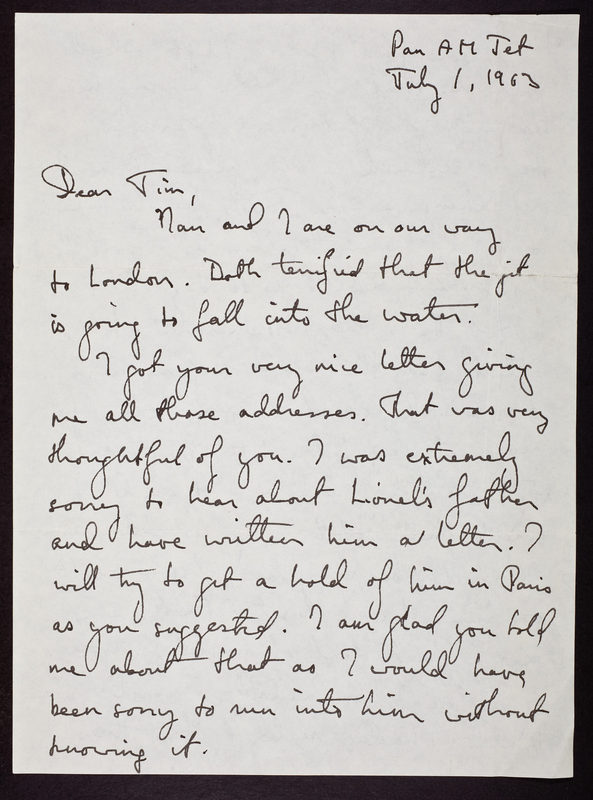 Pan AM Jet
July 1, 1963
Dear Tim,
Nan and I are on our way
to London. Both terrified that the jet
is going to fall into the water.
I got your very nice letter giving
me all those addresses. That was very
thoughtful of you. I was extremely
sorry to hear about Lionel's father
and have written him a letter. I
will try to get a hold of him in Paris
as you suggested. I am glad you told
me about that as I would have
been sorry to run into him without
knowing it.